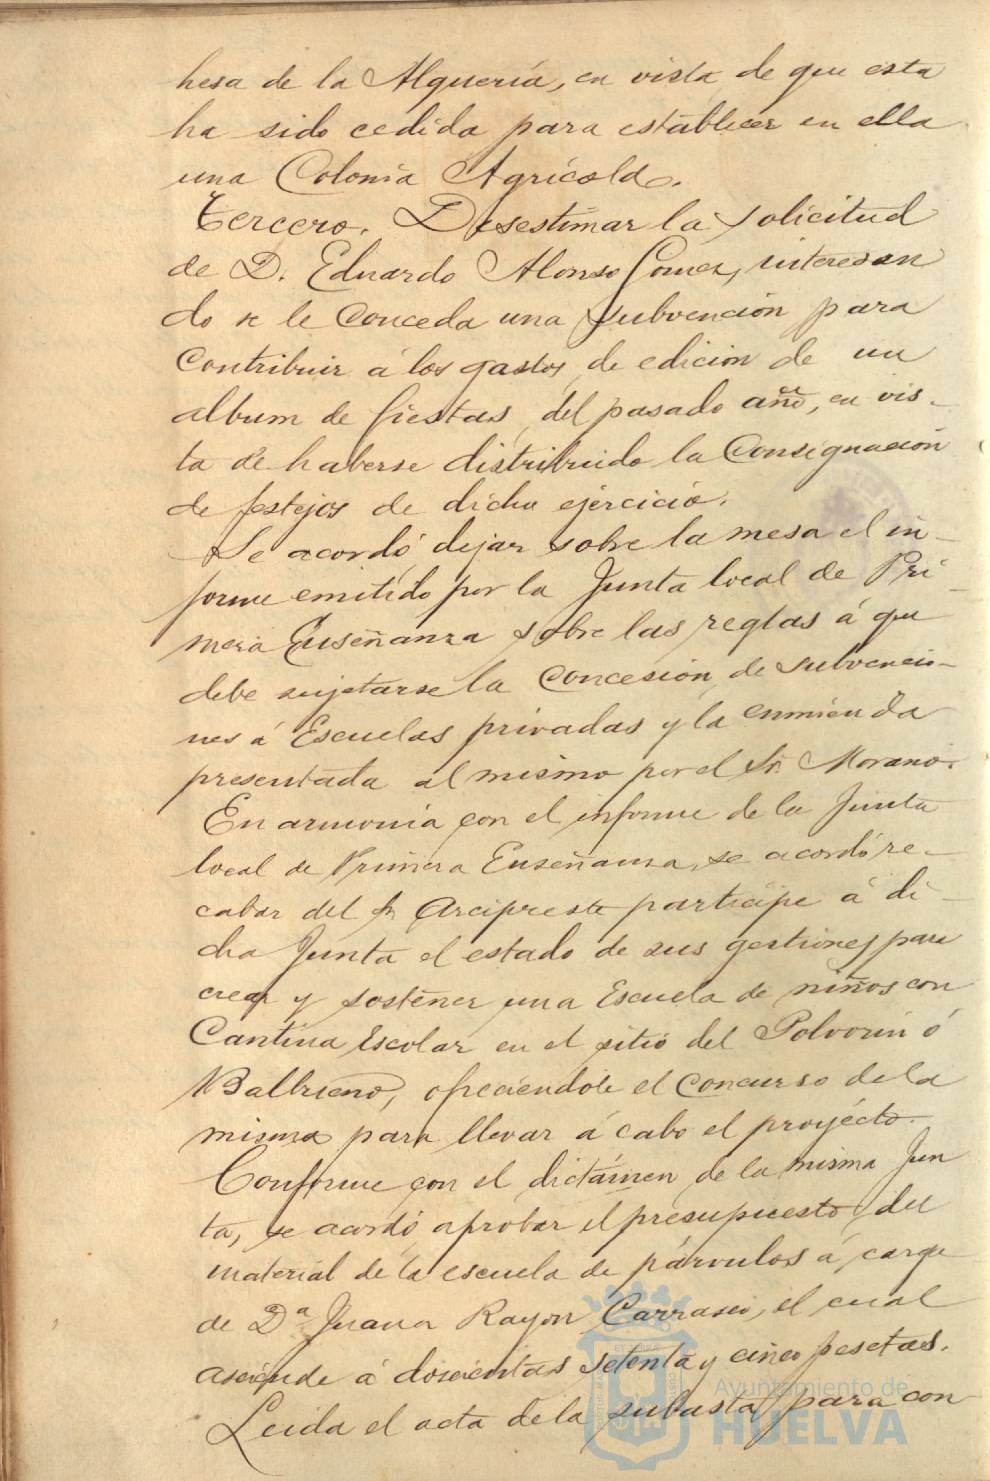 hesa de la Alquería, en vista de que esta
ha sido cedida para establecer en ella
una Colonia Agrícola.
Tercero. Desestimar la solicitud
de D. Eduardo Alonso Gomez, interesan
do se le conceda una subvención para
contribuir á los gastos de edición de un
album de fiestas del pasado año, en vis-
ta de haberse distribuido la consignación
de festejos de dicho ejercicio.
Se acordó dejar sobre la mesa el in-
forme emitido por la Junta local de Pri-
mera Enseñanza sobre las reglas á que
debe sujetarse la concesión de subvencio-
nes á Escuelas privadas y la enmienda
presentada al mismo por el Sr. Morano.
En armonía con el informe de la Junta
local de Primera Enseñanza, se acordó re-
cabar del Sr Arcipreste participe á di-
cha Junta el estado de sus gestiones para
crear y sostener una Escuela de niños con
Cantina Escolar en el sitio del Polvorin ó
Balbueno, ofreciéndole el concurso de la
misma para llevar á cabo el proyécto.
Conforme con el dictámen de la misma Jun
ta, se acordó aprobar el presupuesto del
material de la escuela de párvulos á cargo
de Dª Juana Rayon Carrasco, el cual
asciende á doscientas setenta y cinco pesetas.
Leida el acta de la subasta para con
Ayuntamiento de
HUELVA